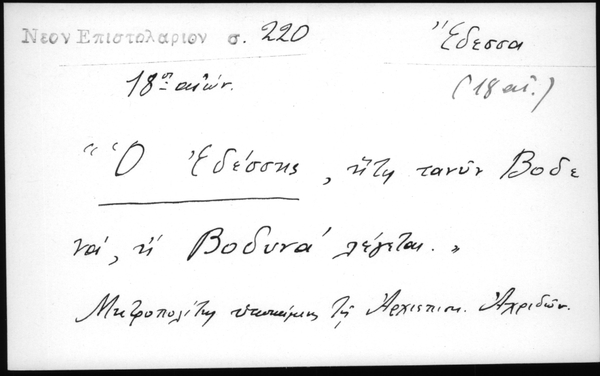 Νεον Επιστολαριον σ. 220
Ἔδεσσα
18ος αἰών.
(18 αἰ.)
"Ὁ Ἐδέσσης, ἥτις τανῦν Βοδε
νά, ἢ Βοδυνά λέγεται."
Μητροπολίτης ὑποκείμενος τῇ Ἀρχιεπισκ. Ἀχριδῶν.